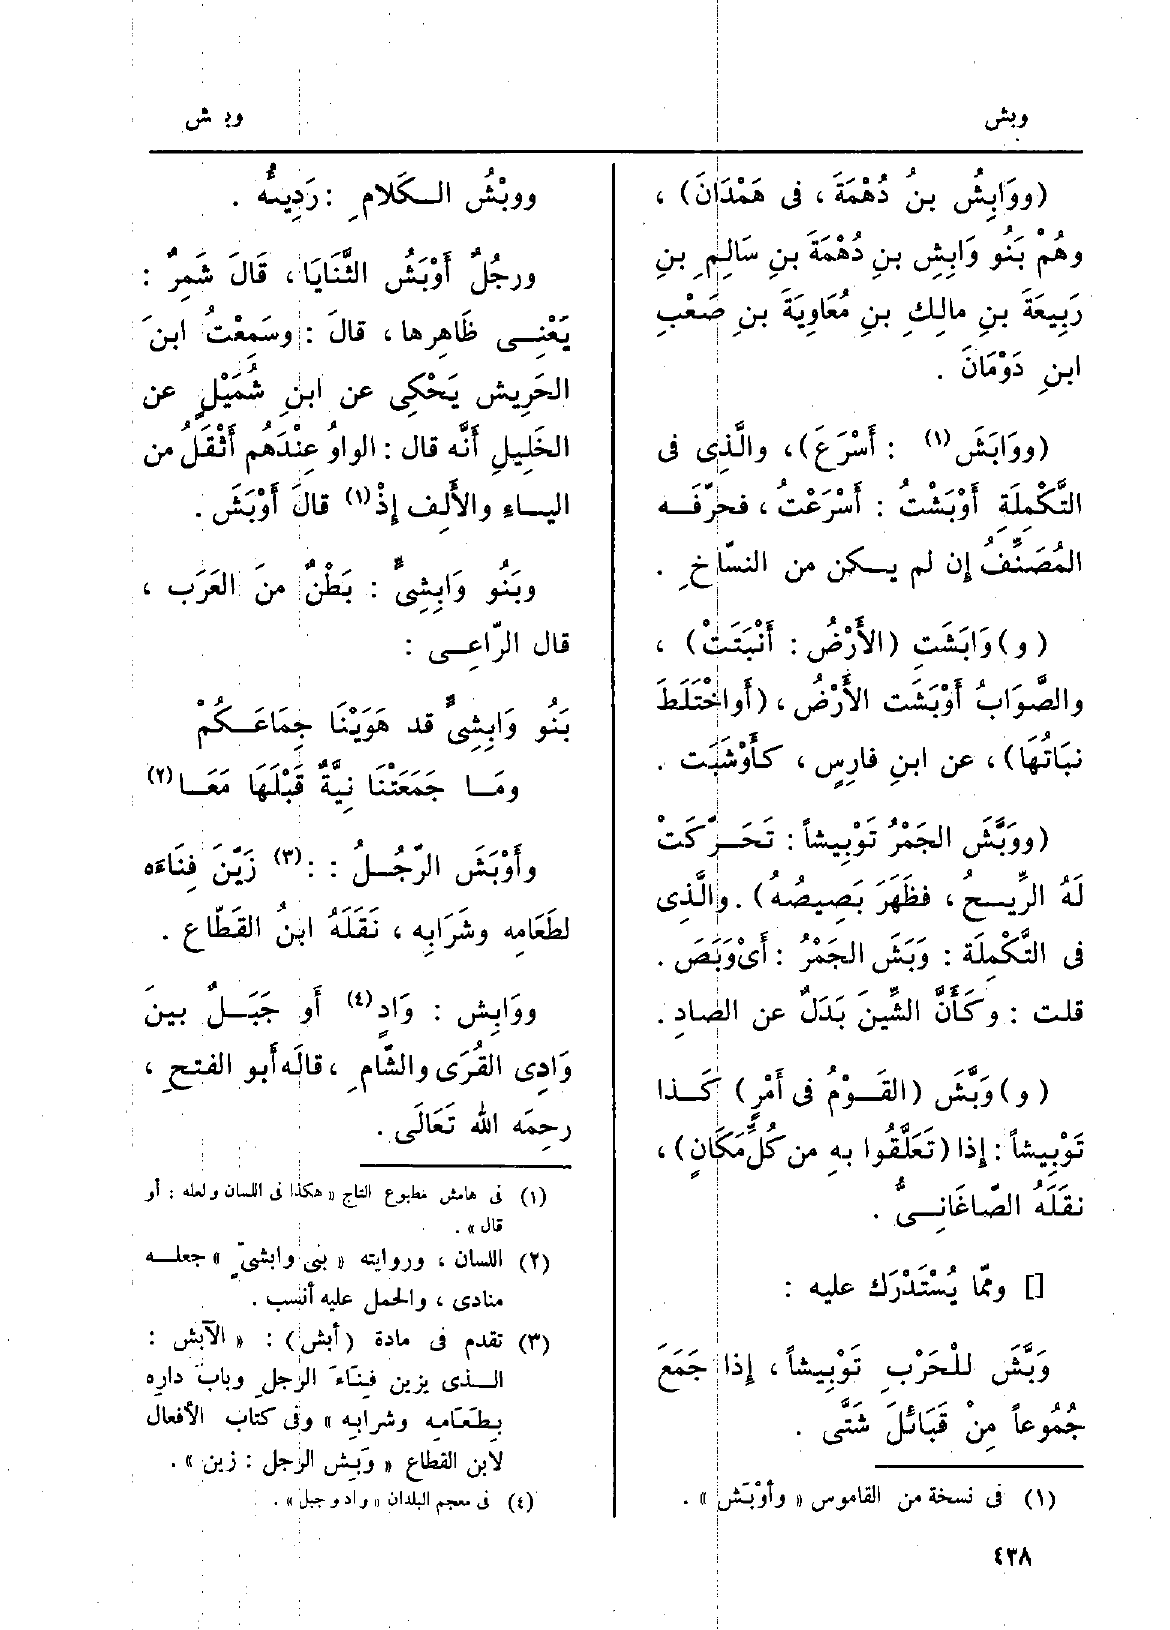 وبش
وبش
(ووَابِشُ بنُ دُهْمَةَ ، فى هَمْدَانَ) ،
وهُمْ بَنُو وَابِشِ بنِ دُهْمَةَ بنِ سَالِمِ بنِ
رَبِيعَةَ بنِ مالِكِ بنِ مُعَاوِيَةَ بنِ صَعْبِ
ابنِ دَوْمَانَ .
(ووَابَشَ (١) : أَسْرَعَ) ، والَّذِى فى
التَّكْمِلَةِ أَوْبَشْتُ : أَسْرَعْتُ ، فحرَّفَــه
المُصَنِّفُ إن لم يــكن من النسّاخِ .
( و ) وَابَشَتِ (الأَرْضُ : أَنْبَتَتْ) ،
والصَّوَابُ أَوْبَشَت الأَرْضُ ، (أَو اخْتَلَطَ
نَبَاتُهَا) ، عن ابنِ فارِسٍ ، كأَوْشَبَت .
(ووَبَّشَ الجَمْرُ تَوْبِيشاً : تَحَــرَّكَتْ
لَهُ الرِّيــحُ ، فظَهَرَ بَصِيصُهُ) . والَّذِى
فى التَّكْمِلَة : وَبَشَ الجَمْرُ : أَى وَبَصَ .
قلت : وكَأَنَّ الشِّينَ بَدَلٌ عن الصادِ .
( و ) وَبَّشَ (القَــوْمُ فى أَمْرٍ) كَــذا
تَوْبِيشاً : إِذا (تَعَلَّقُوا بهِ من كُلِّ مَكَانٍ) ،
نقَلَهُ الصّاغَانِــىُّ .
[] وممّا يُسْتَدْرَك عليه :
وَبَّشَ للْحَرْبِ تَوْبِيشاً ، إِذا جَمَعَ
جُمُوعاً مِنْ قَبَائلَ شَتَّى .
(١) فى نسخة من القاموس « وأوْبَش » .
ووبْشُ الــكَلامِ : رَدِيئُه .
ورجُلٌ أَوْبَشُ الثَّنَايَا ، قَالَ شَمِرٌ :
يَعْنِــى ظَاهِرها ، قالَ : وسَمِعْتُ ابنَ
الحَرِيش يَحْكِى عن ابنِ شُمَيْلٍ عن
الخَلِيلِ أَنَّه قال : الواوُ عِنْدَهُم أَثْقَلُ من
اليــاءِ والأَلِف إِذْ (١) قالَ أَوْبَشَ .
وبَنُو وَابِشِىٍّ : بَطْنٌ منَ العَرَب ،
قال الرّاعِــى :
بَنُو وَابِشِىٍّ قد هَوَيْنَا جِمَاعَــكُمْ
ومَــا جَمَعَتْنَا نِيَّةٌ قَبْلَهَا مَعَــا (٢)
وأَوْبَشَ الرّجُــلُ : : (٣) زَيَّنَ فِنَاءَه
لطَعَامِه وشَرَابِه ، نَقَلَهُ ابنُ القَطّاع .
ووَابِش : وَادٍ (٤) أَو جَبَــلٌ بينَ
وَادِى القُرَى والشَّامِ ، قالَه أَبو الفتحِ ،
رحِمَه الله تَعَالَى .
(١) فى هامش مطبوع التاج « هكذا فى اللسان ولعله : أو
قال » .
(٢) اللسان ، وروايته « بنى وابشىٍّ » جعلــه
منادى ، والحمل عليه أنسب .
(٣) تقدم فى مادة (أبش) : « الآبش :
الــذى يزين فِنَاءَ الرجلِ وبابَ دارِه
بطَعَامِه وشرابه » وفى كتاب الأفعال
لابن القطاع « وَبَش الرجل : زين » .
(٤) فى معجم البلدان « واد وجبل » .
٤٣٨